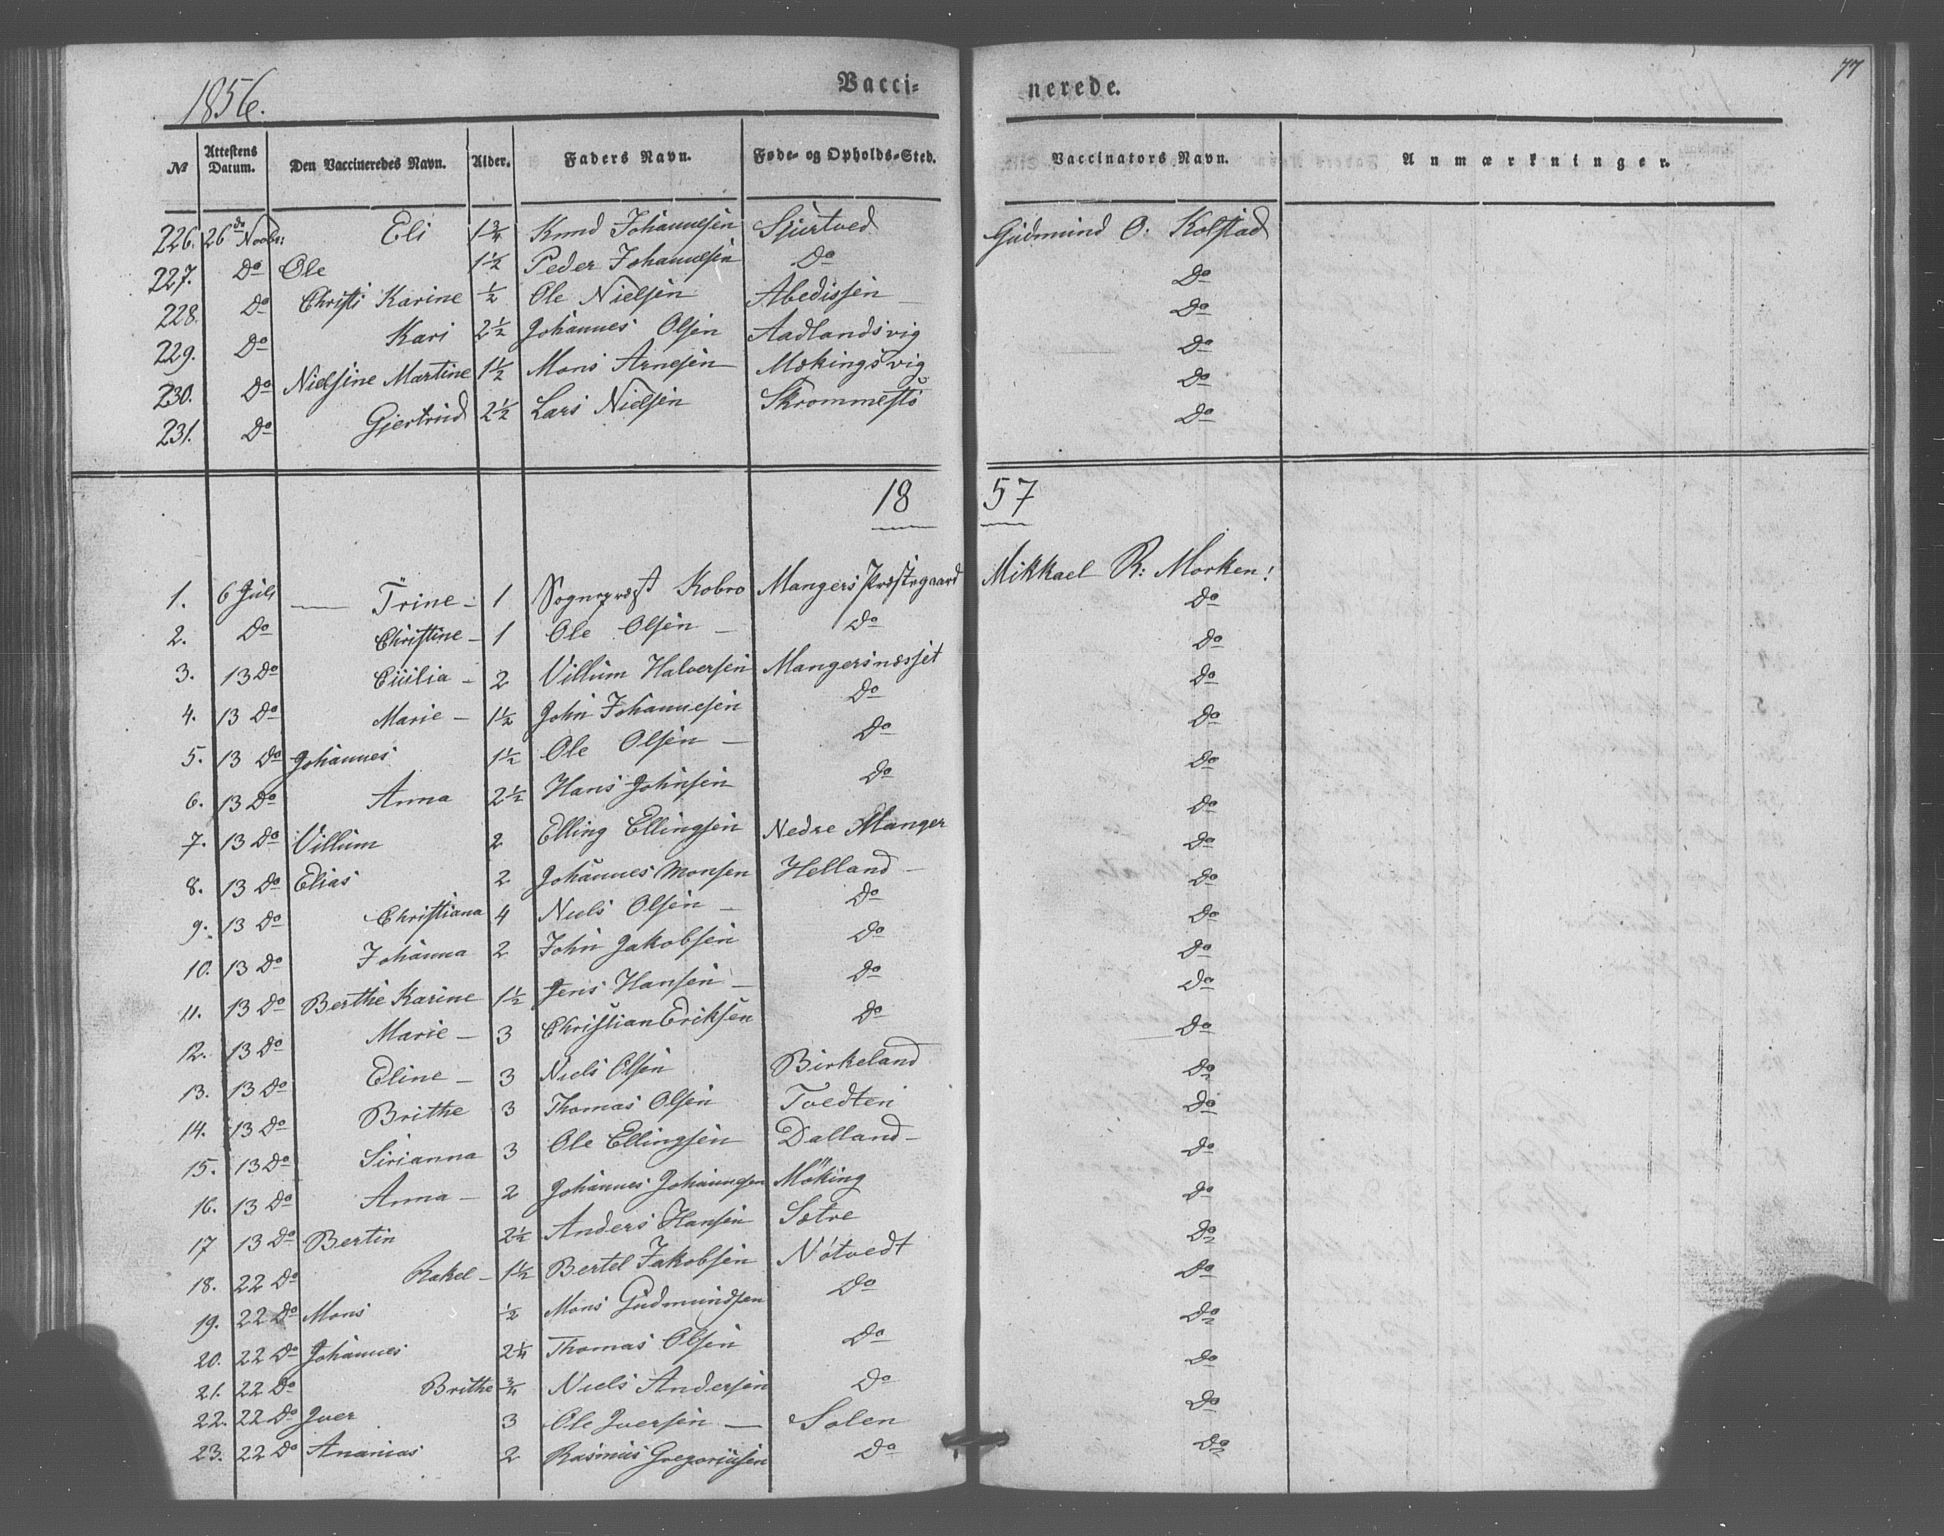 77
1856. Vacci= nerede.
№ Attestens Datum. Den Vaccineredes Navn. Alder. Faders Navn. Føde- og Opholds-Sted. Vaccinators Navn. Anmærkninger.
226. 26de Novbr: Eli 1 3/4 Knud Johannesen Gudmund O. Kolstad
227. Do Ole 1 1/2 Peder Johannesen Do Do
228. Do Christi Karine 1/2 Ole Nielsen Abedissen Do
229. Do Kari 2 1/2 Johannes Olsen Aadlandsvig Do
230. Do Nielsine Martine 1 1/2 Mons Arnesen Mækingsvig Do
231. Do Gjertrud 2 1/2 Lars Nielsen Skrommestø Do
18 57
1. 6 Juli Trine 1 Sognepræst Kobro Mangers Præstegaard Mikkael R: Morken!
2. Do Christine 1 Ole Olsen Do Do
3. 13 Do Cicilia 2 Villum Halversen Mangersnesset Do
4. 13 Do Marie 1 1/2 John Johannesen Do Do
5. 13 Do Johannes 1 1/2 Ole Olsen Do Do
6. 13 Do Anna 2 1/2 Hans Johnsen Do Do
7. 13 Do Villum 2 Elling Ellingsen Nedre Manger Do
8. 13 Do Elias 2 Johannes Monsen Helland Do
9. 13 Do Christiana 4 Niels Olsen Do Do
10. 13 Do Johanna 2 John Jakobsen Do Do
11. 13 Do Berthe Karine 1 1/2 Jens Hansen Do Do
12. 13 Do Marie 3 Christian Eriksen Do Do
13. 13 Do Eline 3 Niels Olsen Birkeland Do
14. 13 Do Brithe 3 Thomas Olsen Tvedten Do
15. 13 Do Sirianna 3 Ole Ellingsen Dalland Do
16. 13 Do Anna 2 Johannes Johannesen Møking Do
17 13 Do Bertin 2 1/2 Anders Hansen Sætre Do
18. 22 Do Rakel 1 1/2 Bertel Jakobsen Nøtvedt Do
19. 22 Do Mons 1/2 Mons Gudmundsen Do Do
20. 22 Do Johannes 2 1/4 Thomas Olsen Do Do
21. 22 Do Brithe 3/4 Niels Andersen Do Do
22. 22 Do Iver 3 Ole Iversen Solen Do
23. 22 Do Ananias 2 Rasmus Gregoriusen Do Do